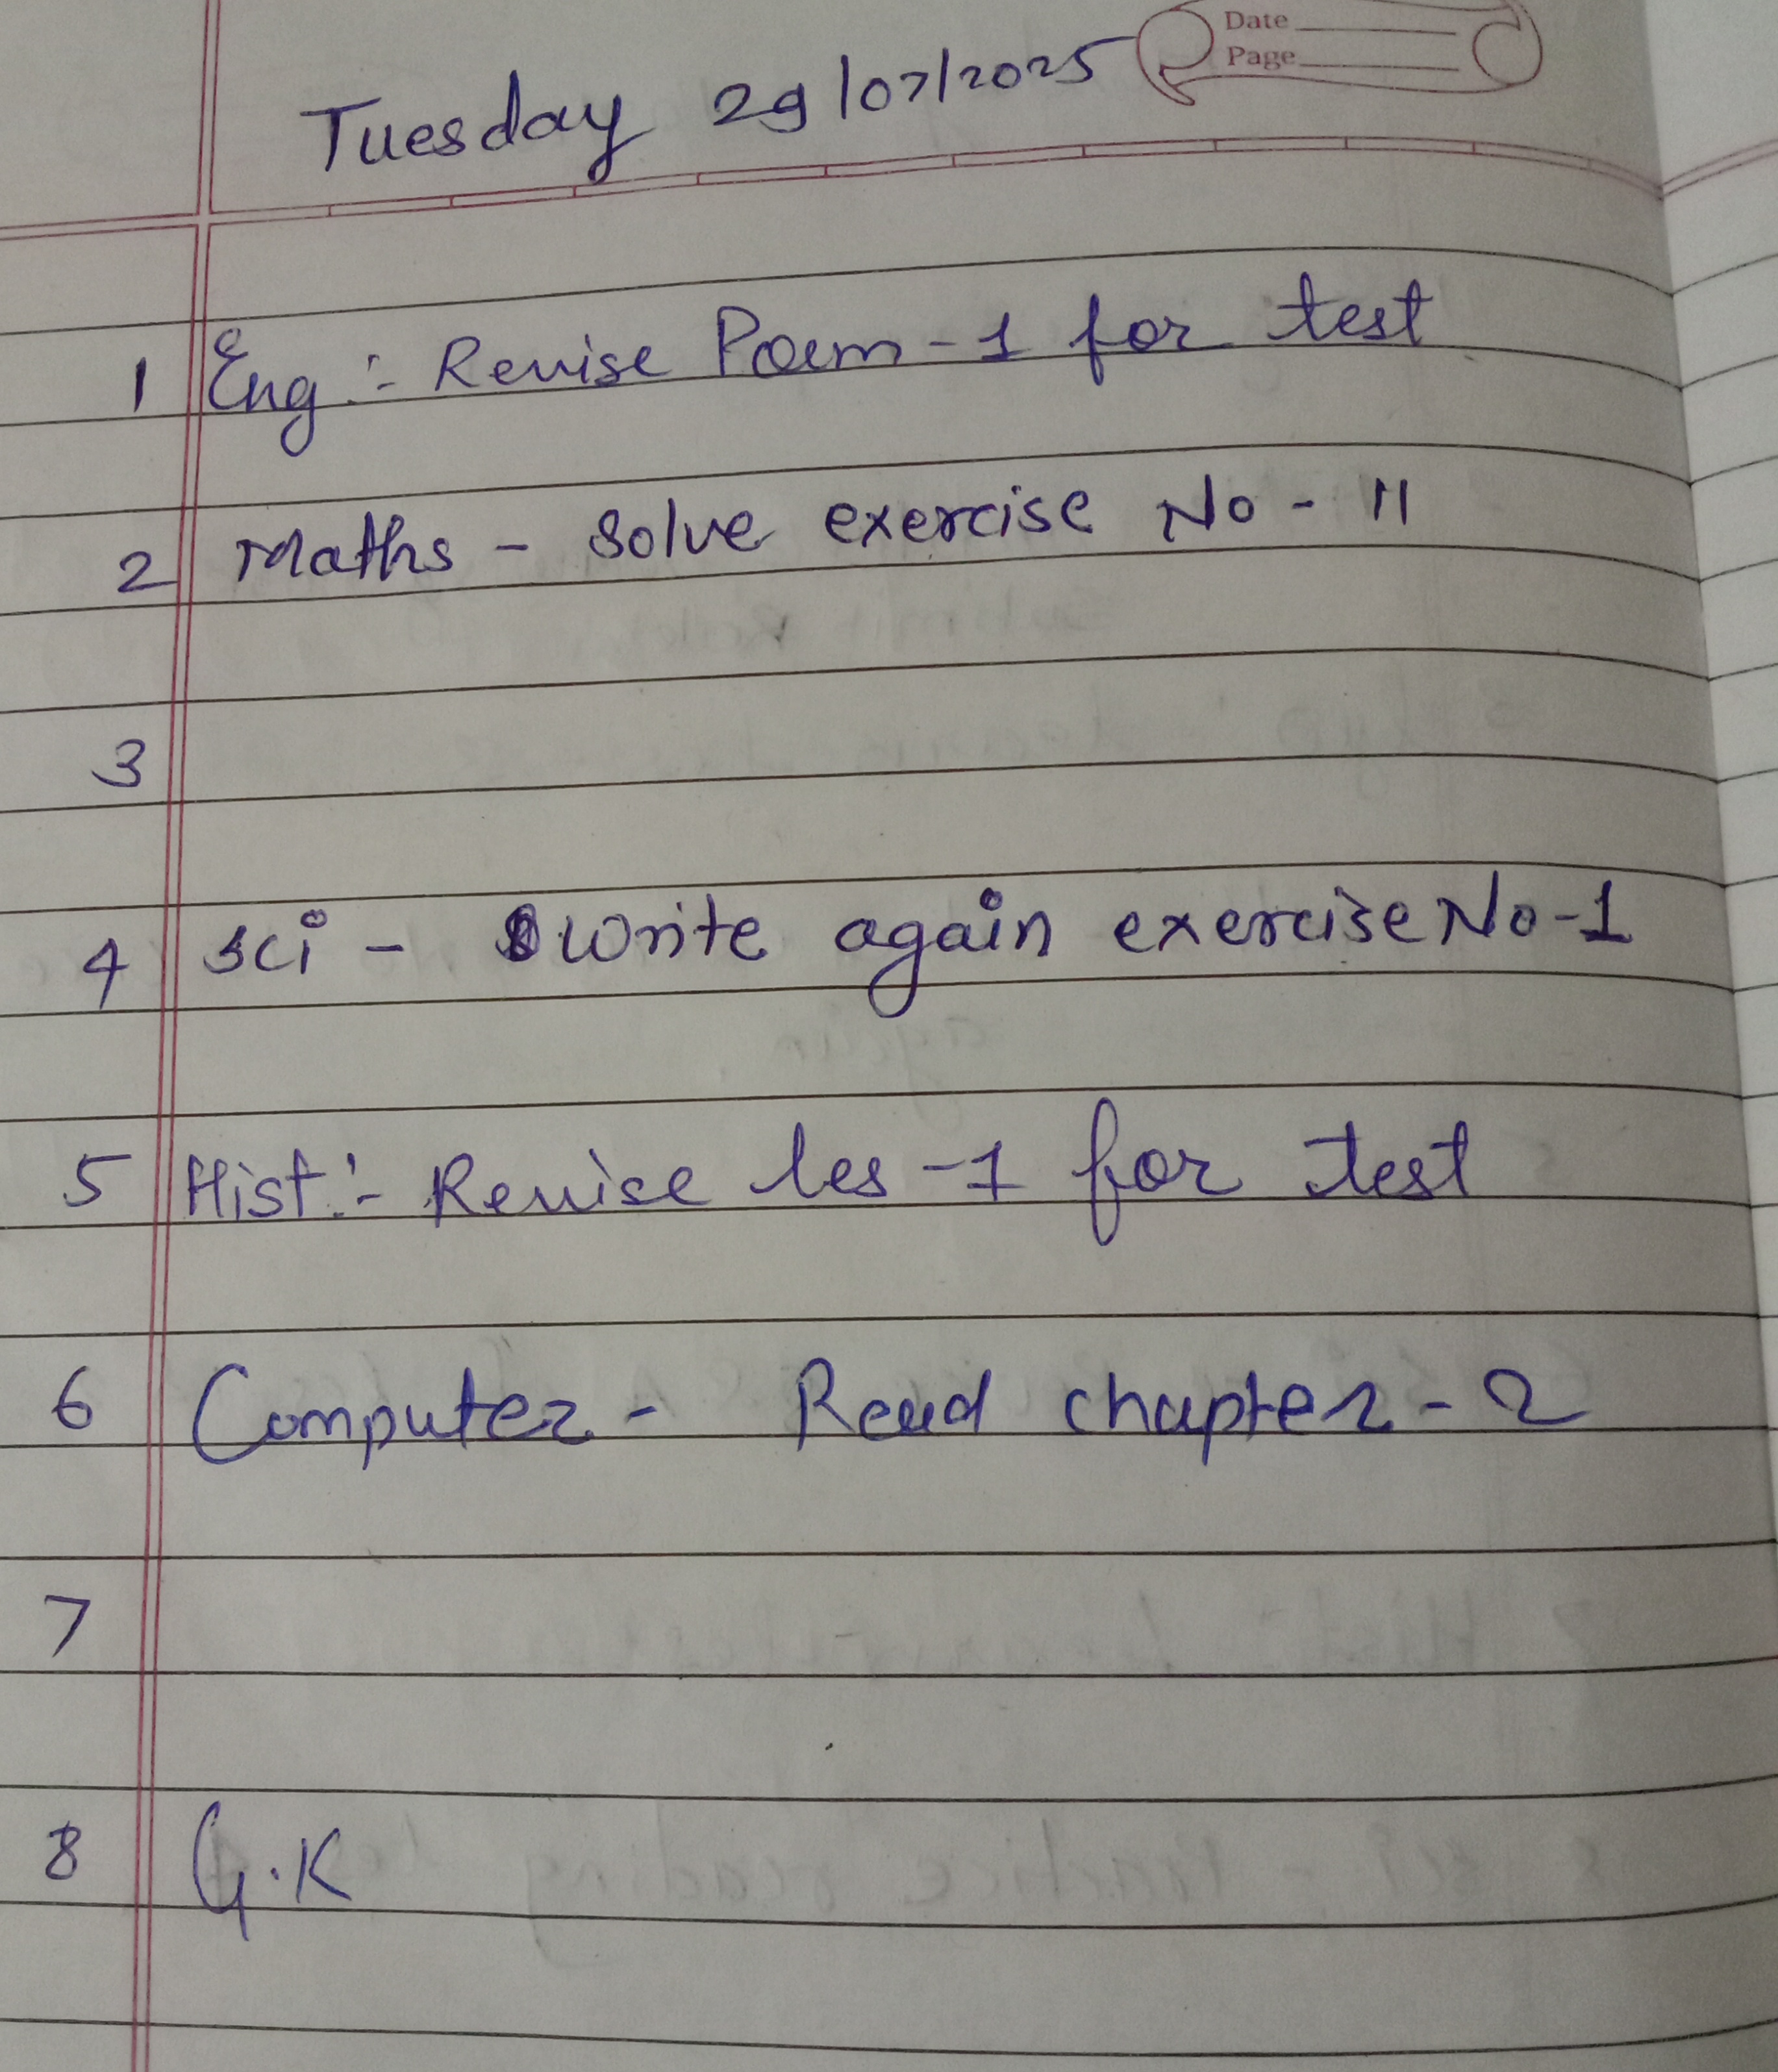 Date
Page
Tuesday 29/07/2025
1 Eng :- Revise Poem - 1 for test
2 Maths - Solve exercise No - 11
3
4 Sci - Write again exercise No - 1
5 Hist :- Revise les - 1 for test
6 Computer - Read chapter - 2
7
8 G.K